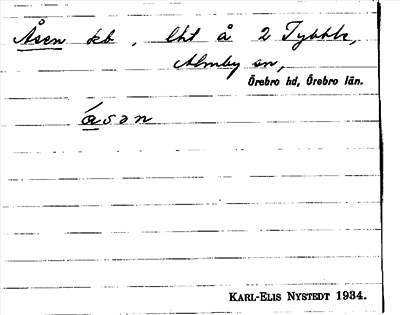 Åsen kb, lht å 2 Tybble,
Almby sn,
Örebro hd, Örebro län.
åsən
KARL-ELIS NYSTEDT 1934.